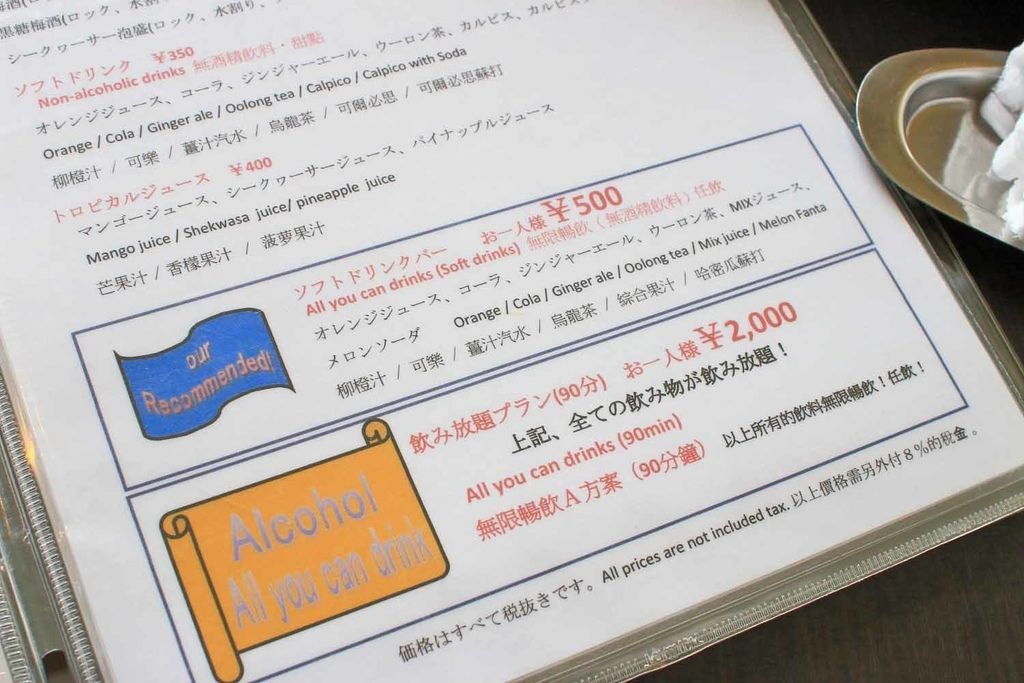 黒糖梅酒(ロック、水割
シークヮーサー泡盛(ロック、水割り、
ソフトドリンク ￥350
Non-alcoholic drinks 無酒精飲料・甜點
オレンジジュース、コーラ、ジンジャーエール、ウーロン茶、カルピス、カルピス
Orange / Cola / Ginger ale / Oolong tea / Calpico / Calpico with Soda
柳橙汁 / 可樂 / 薑汁汽水 / 烏龍茶 / 可爾必思 / 可爾必思蘇打
トロピカルジュース ￥400
マンゴージュース、シークヮーサージュース、パイナップルジュース
Mango juice / Shekwasa juice/ pineapple juice
芒果汁 / 香檬果汁 / 菠萝果汁
our
Recommended!
ソフトドリンクバー お一人様 ￥500
All you can drinks (Soft drinks) 無限暢飲（無酒精飲料）任飲
オレンジジュース、コーラ、ジンジャーエール、ウーロン茶、MIXジュース、
メロンソーダ Orange / Cola / Ginger ale / Oolong tea / Mix juice / Melon Fanta
柳橙汁 / 可樂 / 薑汁汽水 / 烏龍茶 / 綜合果汁 / 哈密瓜蘇打
Alcohol
All you can drink
飲み放題プラン(90分) お一人様 ￥2,000
上記、全ての飲み物が飲み放題！
All you can drinks (90min)
無限暢飲Ａ方案（90分鐘） 以上所有的飲料無限暢飲！任飲！
価格はすべて税抜きです。All prices are not included tax. 以上價格需另外付８％的税金。